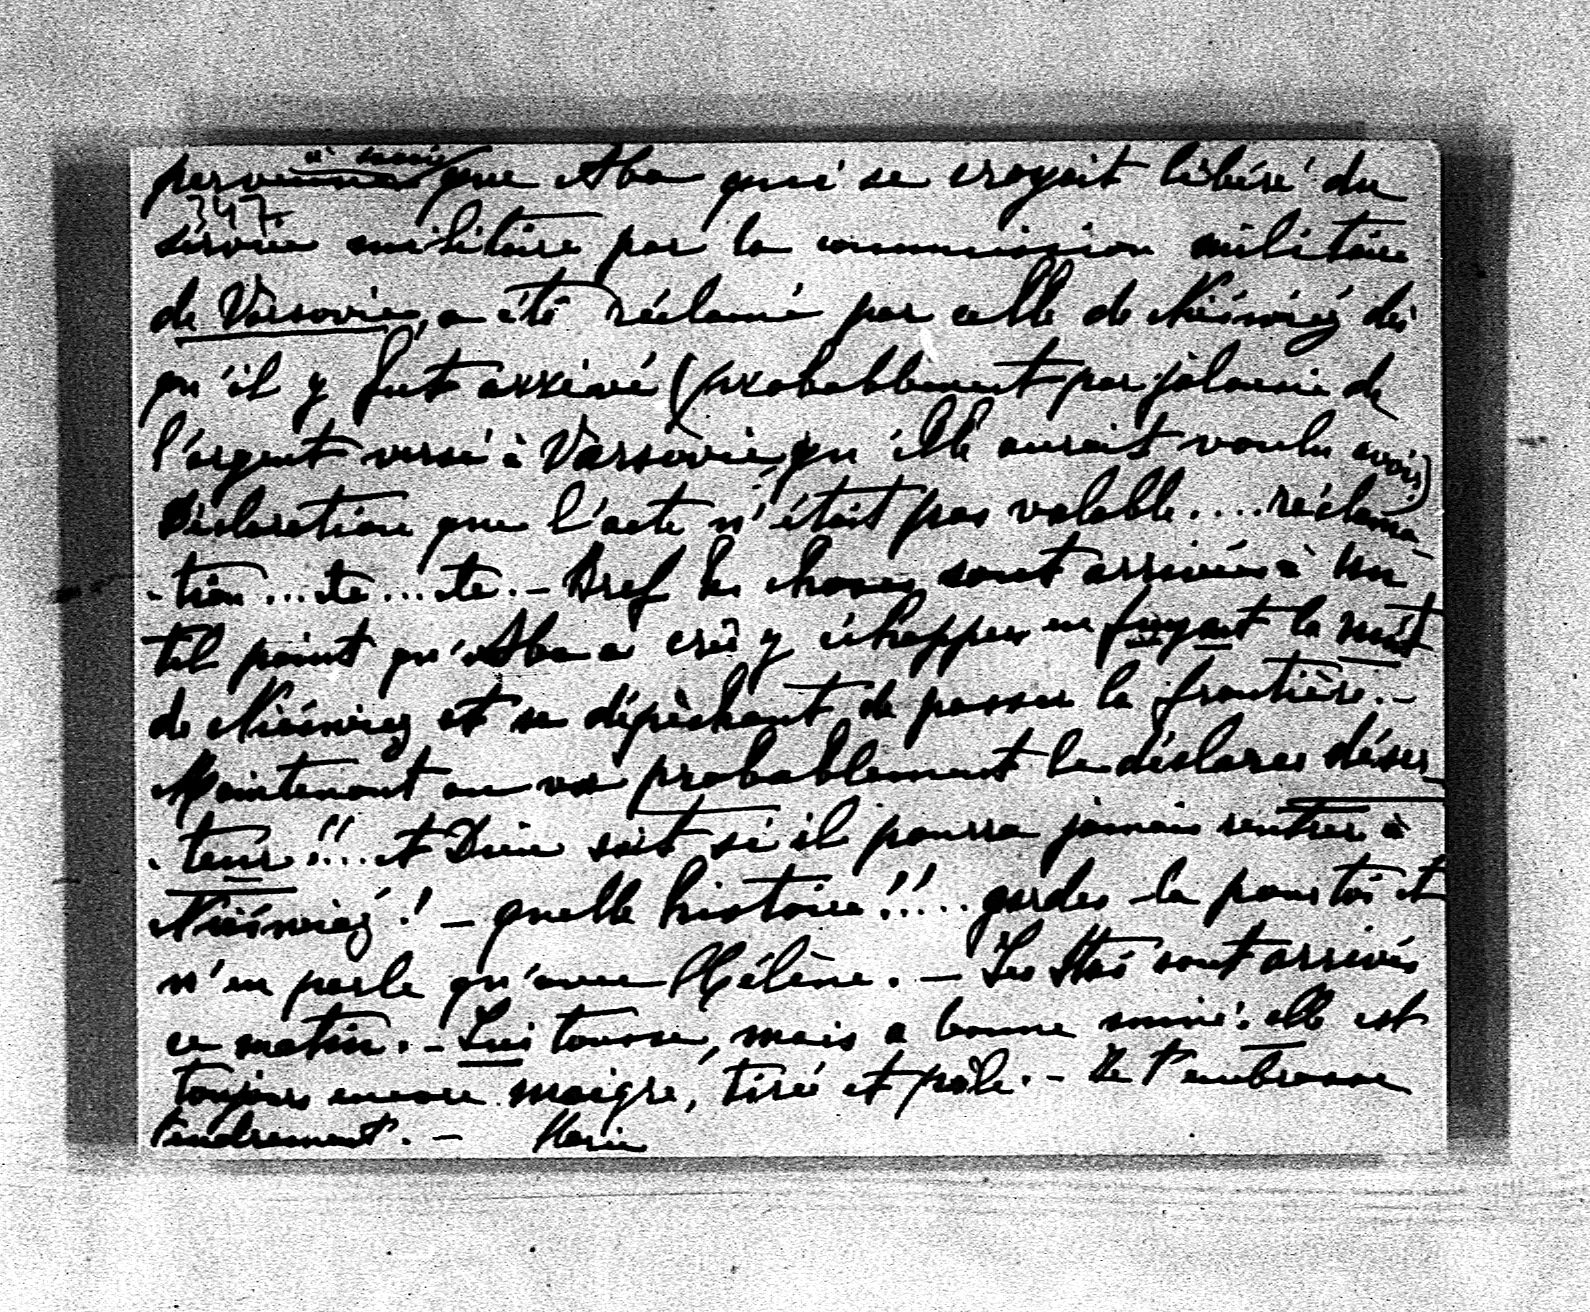 à savoir
personne que Aba qui se croyait libéré du
347.
service militaire par la commission militaire
de Varsovie, a été réclamé par celle de Nieśwież dès
qu'il y fut arrivé (probablement par jalousie de
l'argent versé à Varsovie, qu'elle aurait voulu avoir)
Déclaration que l'acte n'était pas valable....réclama-
-tion...etc...etc.- Bref les choses sont arrivées à un
tel point qu'Aba a crû y échapper en fuyant la nuit
de Nieśwież et se dépêchant de passer la frontière.-
Maintenant on va probablement le déclarer déser-
-teur!!...et Dieu sait si il pourra jamais rentrer à
Nieśwież! - quelle histoire!!.... gardes-la pour toi et
n'en parle qu'avec Hélène. - Les Staś sont arrivés
ce matin. - Lui tousse, mais a bonne mine. elle est
toujours encore maigre, tirée et pâle. - Je t'embrasse
tendrement. - Marie